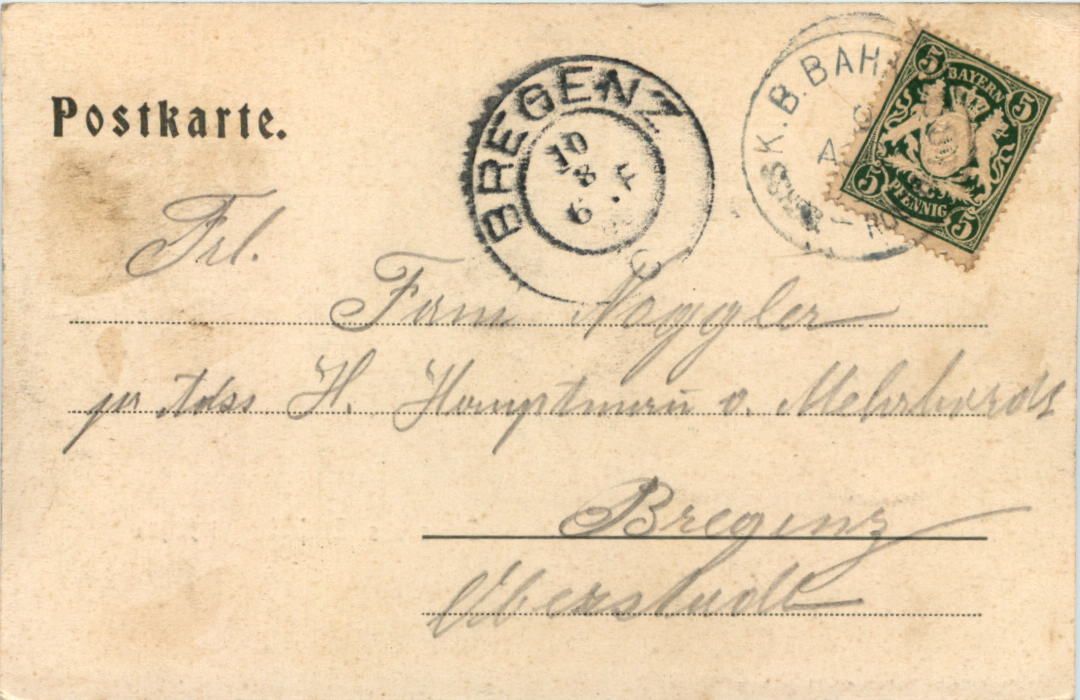 Postkarte.
BREGENZ
10
8
6 . F
K.B.BAH
5 BAYERN 5
5 PFENNIG 5
Frl.
Fanni Noggler
pr Adss H. Hauptmann v. Mehrhardt
Bregenz
Oberstadt